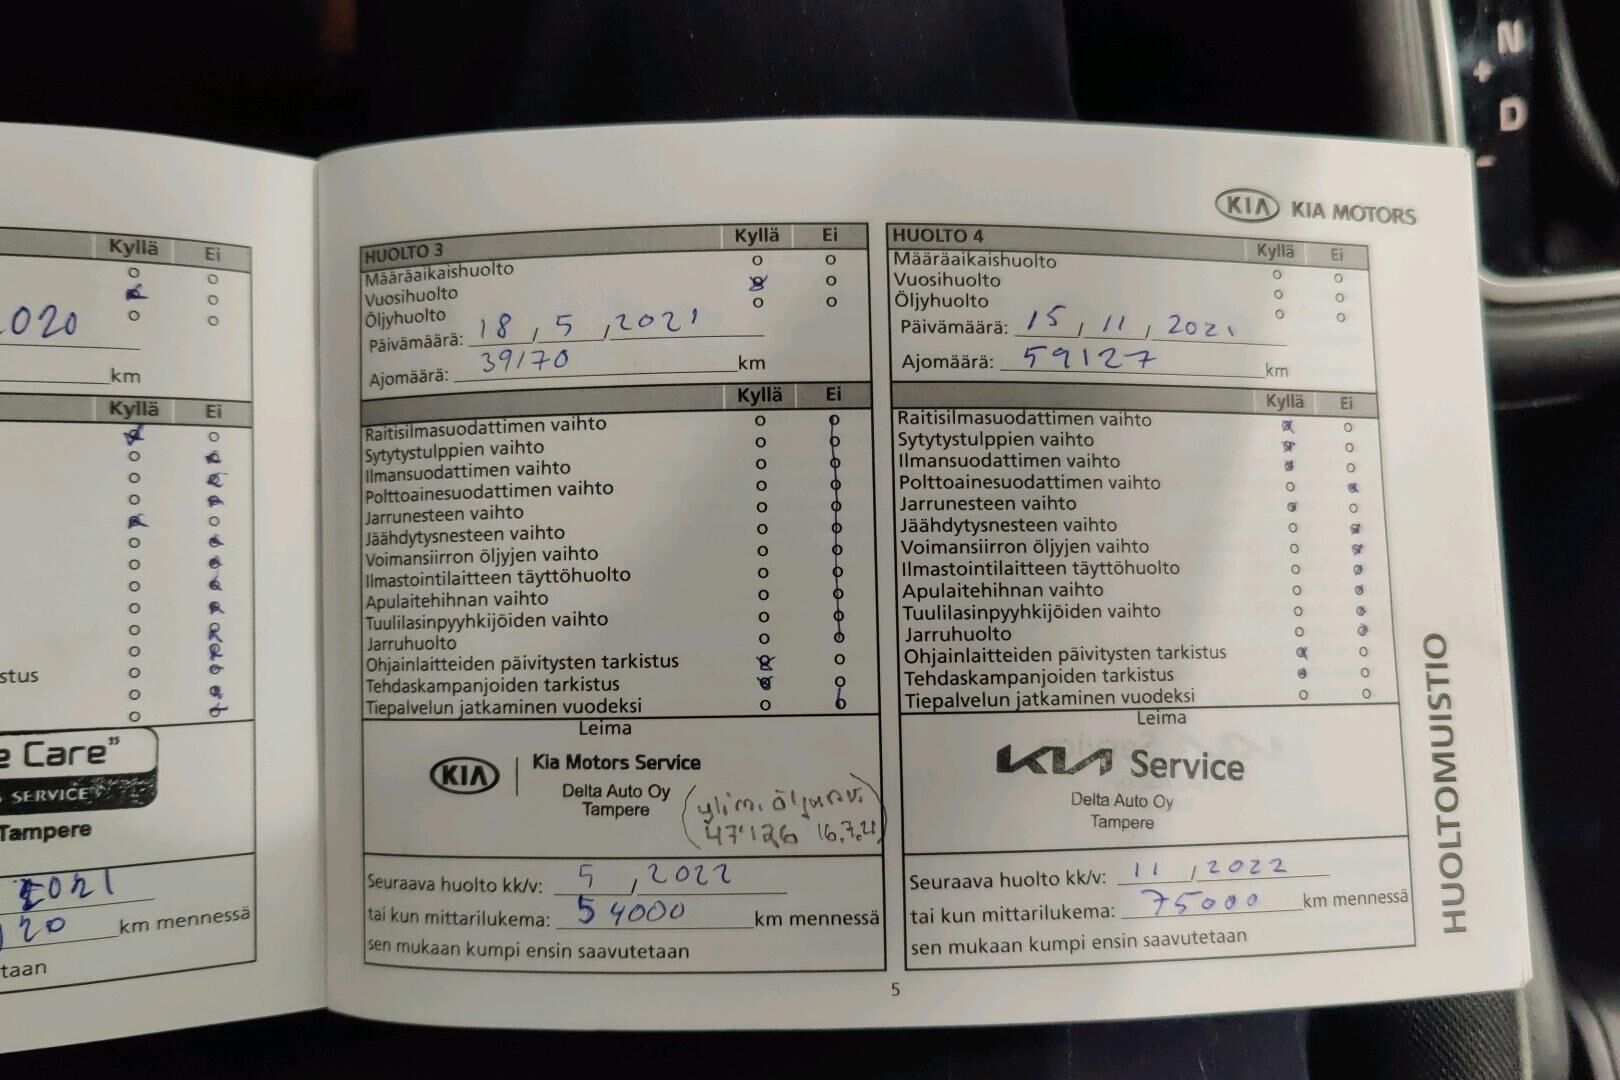 N
+
D
-
Kyllä Ei
2020
km
Kyllä Ei
stus
e Care”
SERVICE
Tampere
2021
20 km mennessä
taan
KIA KIA MOTORS
HUOLTO 3 Kyllä Ei
Määräaikaishuolto
Vuosihuolto
Öljyhuolto
Päivämäärä: 18, 5, 2021
Ajomäärä: 39170 km
Kyllä Ei
Raitisilmasuodattimen vaihto
Sytytystulppien vaihto
Ilmansuodattimen vaihto
Polttoainesuodattimen vaihto
Jarrunesteen vaihto
Jäähdytysnesteen vaihto
Voimansiirron öljyjen vaihto
Ilmastointilaitteen täyttöhuolto
Apulaitehihnan vaihto
Tuulilasinpyyhkijöiden vaihto
Jarruhuolto
Ohjainlaitteiden päivitysten tarkistus
Tehdaskampanjoiden tarkistus
Tiepalvelun jatkaminen vuodeksi
Leima
KIA Kia Motors Service
Delta Auto Oy
Tampere
(ylim. öljynv.
47126 16.7.21)
Seuraava huolto kk/v: 5, 2022
tai kun mittarilukema: 54000 km mennessä
sen mukaan kumpi ensin saavutetaan
HUOLTO 4 Kyllä Ei
Määräaikaishuolto
Vuosihuolto
Öljyhuolto
Päivämäärä: 15, 11, 2021
Ajomäärä: 59127 km
Kyllä Ei
Raitisilmasuodattimen vaihto
Sytytystulppien vaihto
Ilmansuodattimen vaihto
Polttoainesuodattimen vaihto
Jarrunesteen vaihto
Jäähdytysnesteen vaihto
Voimansiirron öljyjen vaihto
Ilmastointilaitteen täyttöhuolto
Apulaitehihnan vaihto
Tuulilasinpyyhkijöiden vaihto
Jarruhuolto
Ohjainlaitteiden päivitysten tarkistus
Tehdaskampanjoiden tarkistus
Tiepalvelun jatkaminen vuodeksi
Leima
KIA Service
Delta Auto Oy
Tampere
Seuraava huolto kk/v: 11, 2022
tai kun mittarilukema: 75000 km mennessä
sen mukaan kumpi ensin saavutetaan
HUOLTOMUISTIO
5